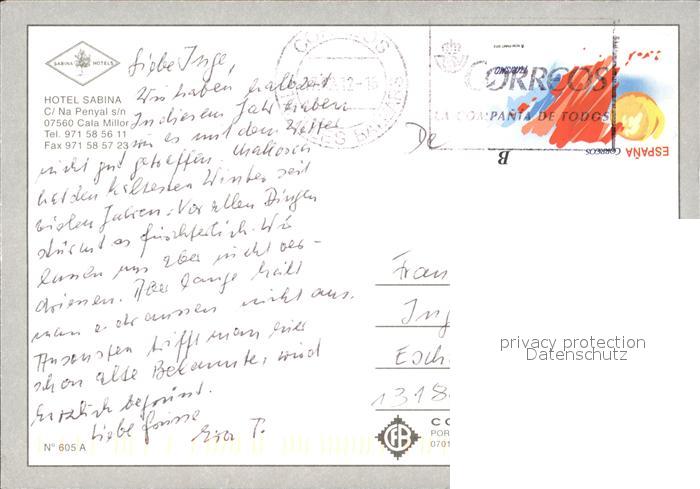 SABINA HOTELS
HOTEL SABINA
C/ Na Penyal s/n
07560 Cala Millor
Tel. 971 58 56 11
Fax 971 58 57 23
Liebe Inge,
Wir haben halbzeit
In diesem Jahr haben
wir es mit dem Wetter
nicht gut getroffen. Mallorca
hat den kältesten Winter seit
vielen Jahren. Vor allen Dingen
stürmt es fürchterlich. Wir
lassen uns aber nicht ver-
driessen. Aber lange hält
man es draussen nicht aus.
Ansonsten trifft man hier
schon alte Bekannte, wird
herzlich begrüsst.
Liebe Grüsse
Eva P.
Nº 605 A
CORREOS
12-1
CORREOS
LA COMPAÑIA DE TODOS
TURISMO
ESPAÑA
CORREOS
B
De
Fran
Ing
Esch
1318
CO
POR
0701
privacy protection
Datenschutz